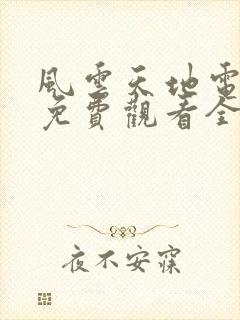 風雲天地電
免費觀看全
夜不安寐